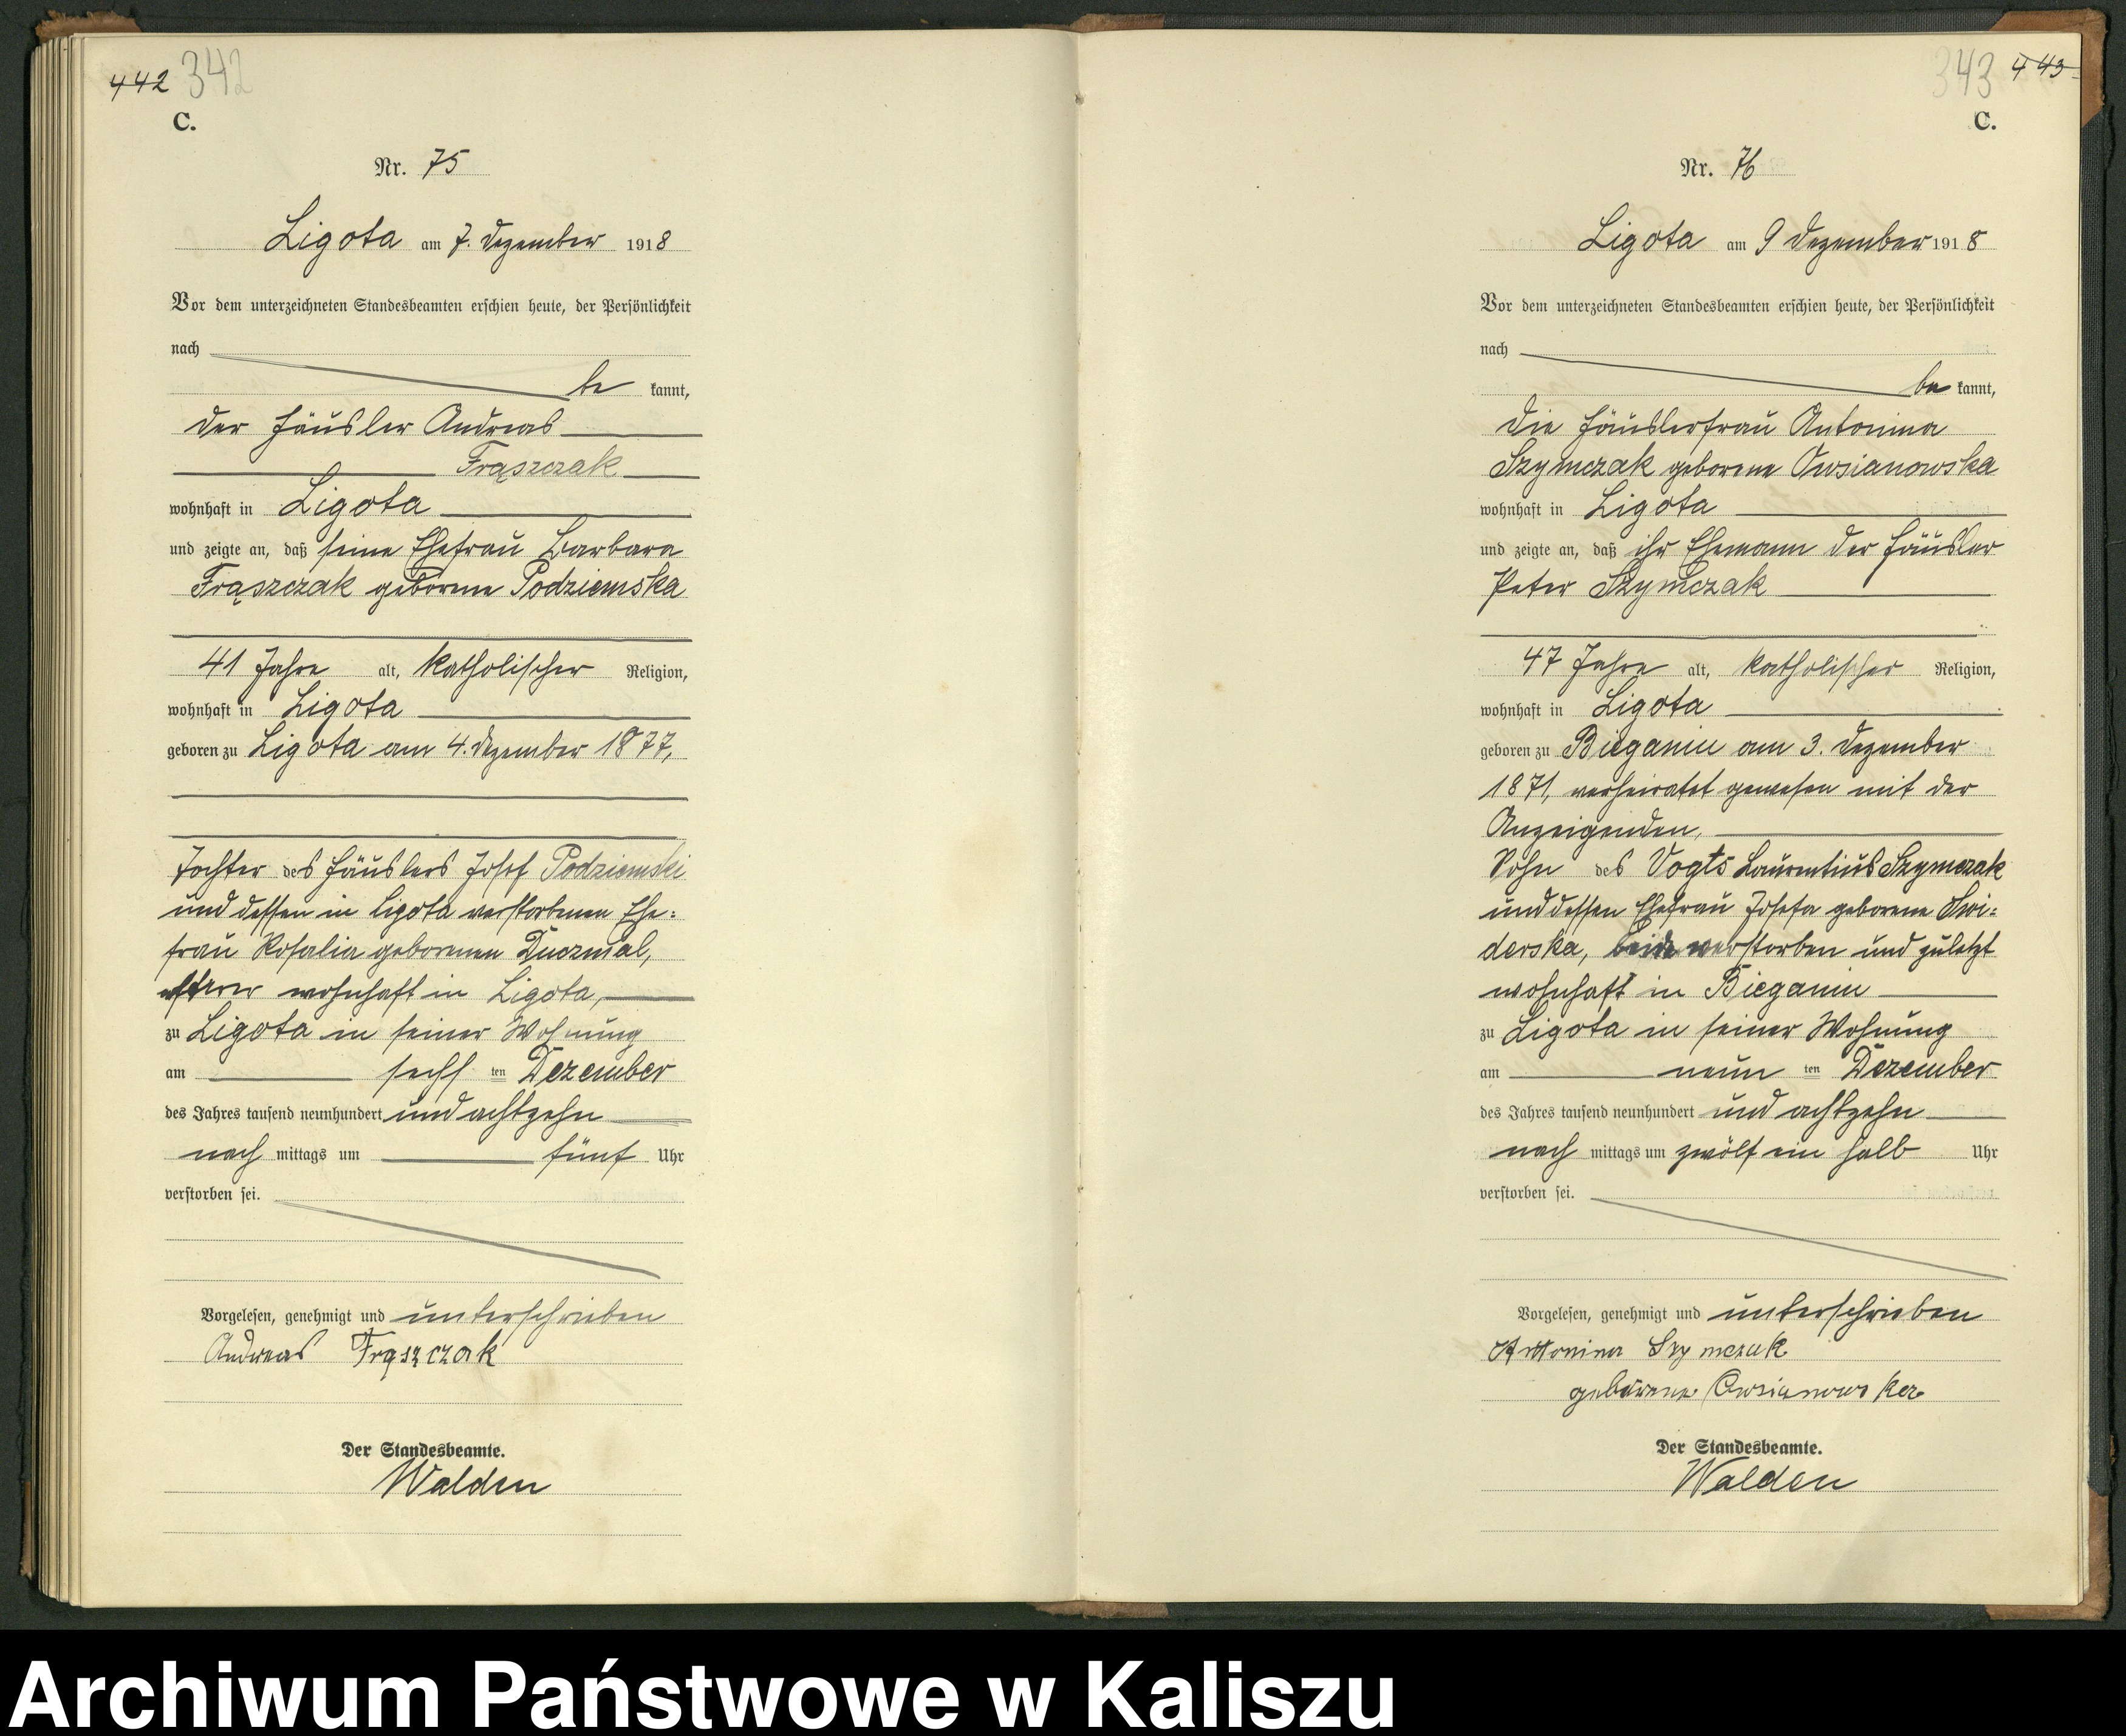 442 342
C.
Nr. 75
Ligota am 7. Dezember 1918
Vor dem unterzeichneten Standesbeamten erschien heute, der Persönlichkeit
nach
be kannt,
der Häusler Andreas
Frąszczak
wohnhaft in Ligota
und zeigte an, daß seine Ehefrau Barbara
Frąszczak geborene Podziemska
41 Jahre alt, katholischer Religion,
wohnhaft in Ligota
geboren zu Ligota am 4. Dezember 1877,
Tochter des Häuslers Josef Podziemski
und dessen in Ligota verstorbenen Ehe=
frau Rosalia geborenen
ersterer wohnhaft in Ligota,
zu Ligota in seiner Wohnung
am sechs ten Dezember
des Jahres tausend neunhundert und achtzehn
nach mittags um fünf Uhr
verstorben sei.
Vorgelesen, genehmigt und unterschrieben
Andreas Frąszczak
Der Standesbeamte.
Walden
343 443
C.
Nr. 76
Ligota am 9 Dezember 1918
Vor dem unterzeichneten Standesbeamten erschien heute, der Persönlichkeit
nach
be kannt,
die Häuslerfrau Antonina
Szymczak geborene Owsianowska
wohnhaft in Ligota
und zeigte an, daß ihr Ehemann der Häusler
Peter Szymczak
47 Jahre alt, katholischer Religion,
wohnhaft in Ligota
geboren zu Bieganin am 3. Dezember
1871, verheiratet gewesen mit der
Anzeigenden,
Sohn des Vogts Laurentius Szymczak
und dessen Ehefrau Josefa geborene Swi=
derska, beide verstorben und zuletzt
wohnhaft in Bieganin
zu Ligota in seiner Wohnung
am neun ten Dezember
des Jahres tausend neunhundert und achtzehn
nach mittags um zwölf ein halb Uhr
verstorben sei.
Vorgelesen, genehmigt und unterschrieben
Antonina Szymczak
geborene Owsianowska
Der Standesbeamte.
Walden
Archiwum Państwowe w Kaliszu